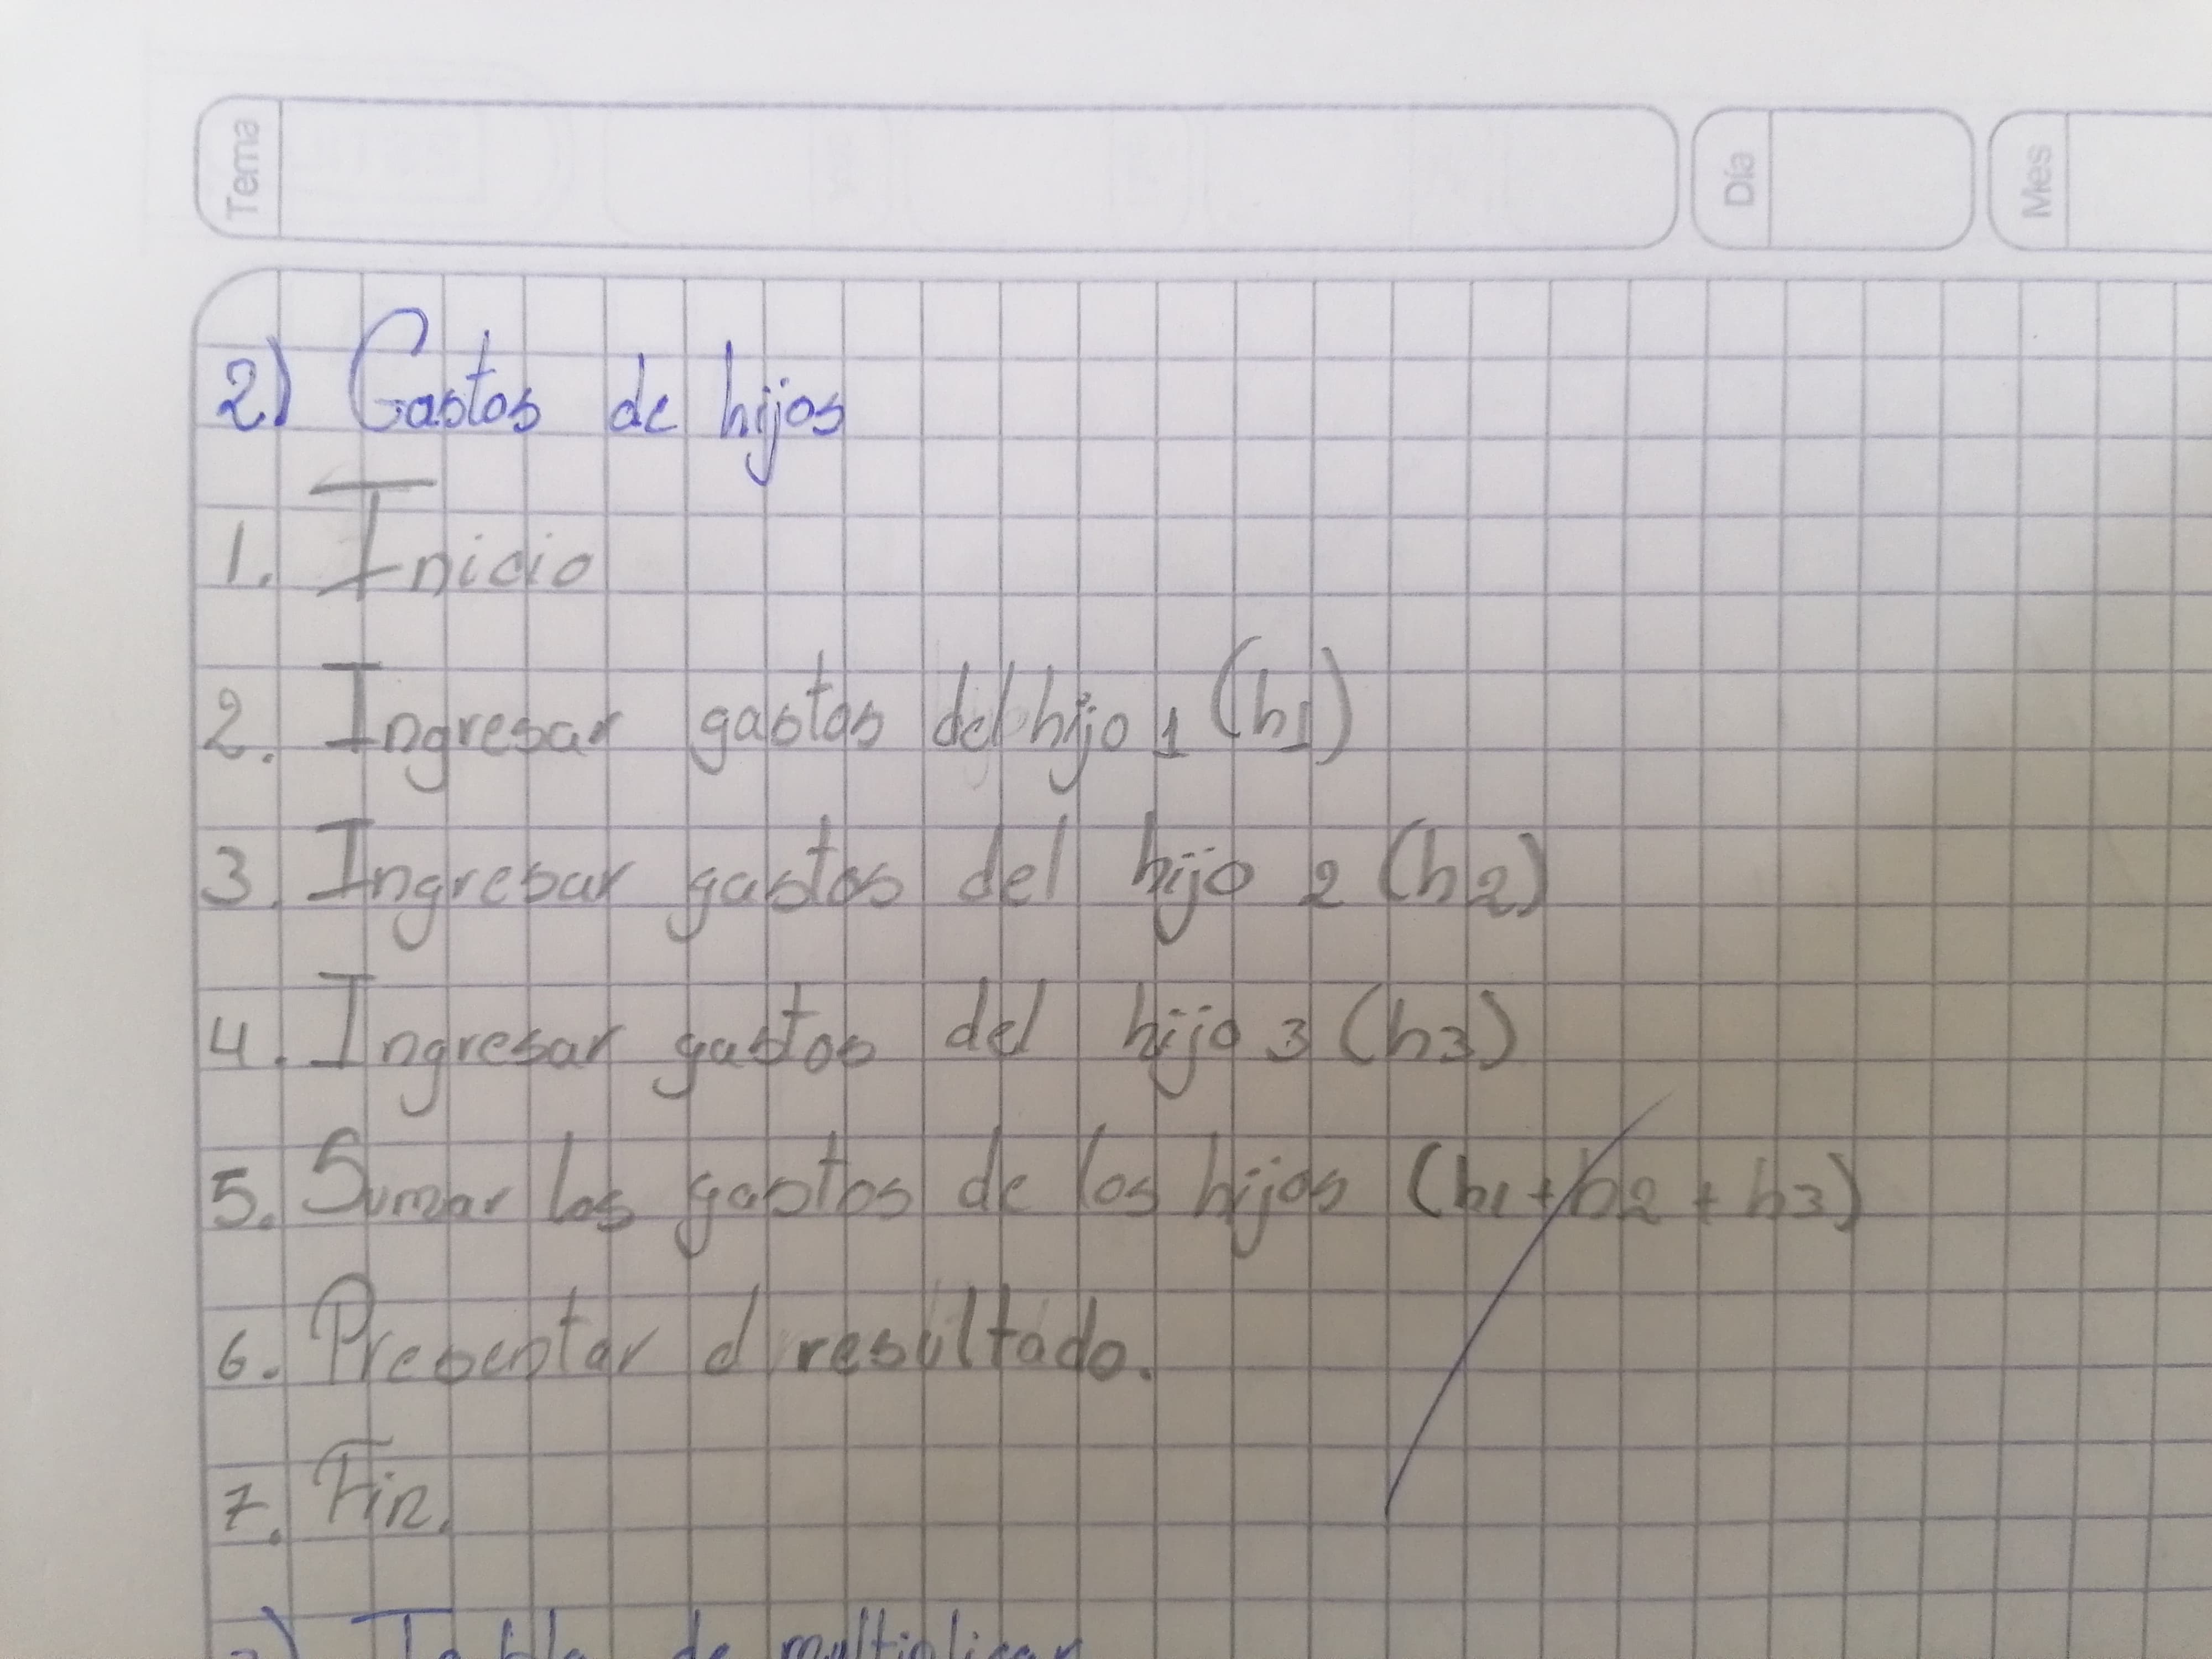 Tema
Día
Mes
2) Gastos de hijos
1. Inicio
2. Ingresar gastos del hijo 1 (h1)
3. Ingresar gastos del hijo 2 (h2)
4. Ingresar gastos del hijo 3 (h3)
5. Sumar los gastos de los hijos (h1 + h2 + h3)
6. Presentar el resultado.
7. Fin.
3) Tabla de multiplicar